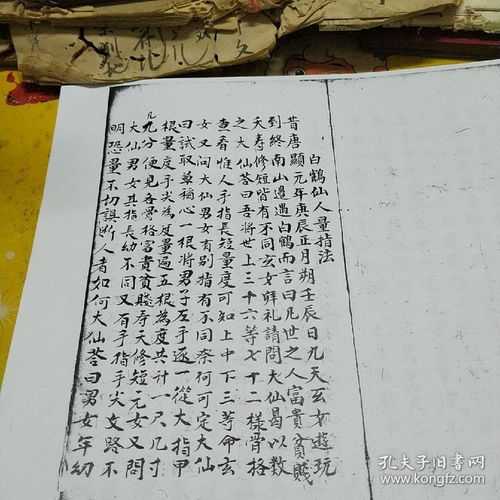 白鶴仙人量指法
昔唐顯元年庚辰正月朔壬辰日九天玄女遊玩
到終南山邊遇白鶴而言曰凡世之人富貴貧賤
夭壽修短皆有不同玄女辞礼請問大仙曷以数
之大仙荅曰吾將世上三十六等七十二樣骨格
查看惟人手指長短量度可知上中下三等命玄
女又问大仙男女有别指有不同奈何可定大仙
曰試取草稱心一根將男子左手逐一從大指甲
根量度手尖為度量過五根為度共计一尺几寸
几九分便見各骨格富貴貧賤寿夭修短元女又問
大仙男女其指長幼不同又有手指手尖文路不
明恐量不切誤断人者如何大仙荅曰男女年幼
孔夫子旧书网
kongfz.com